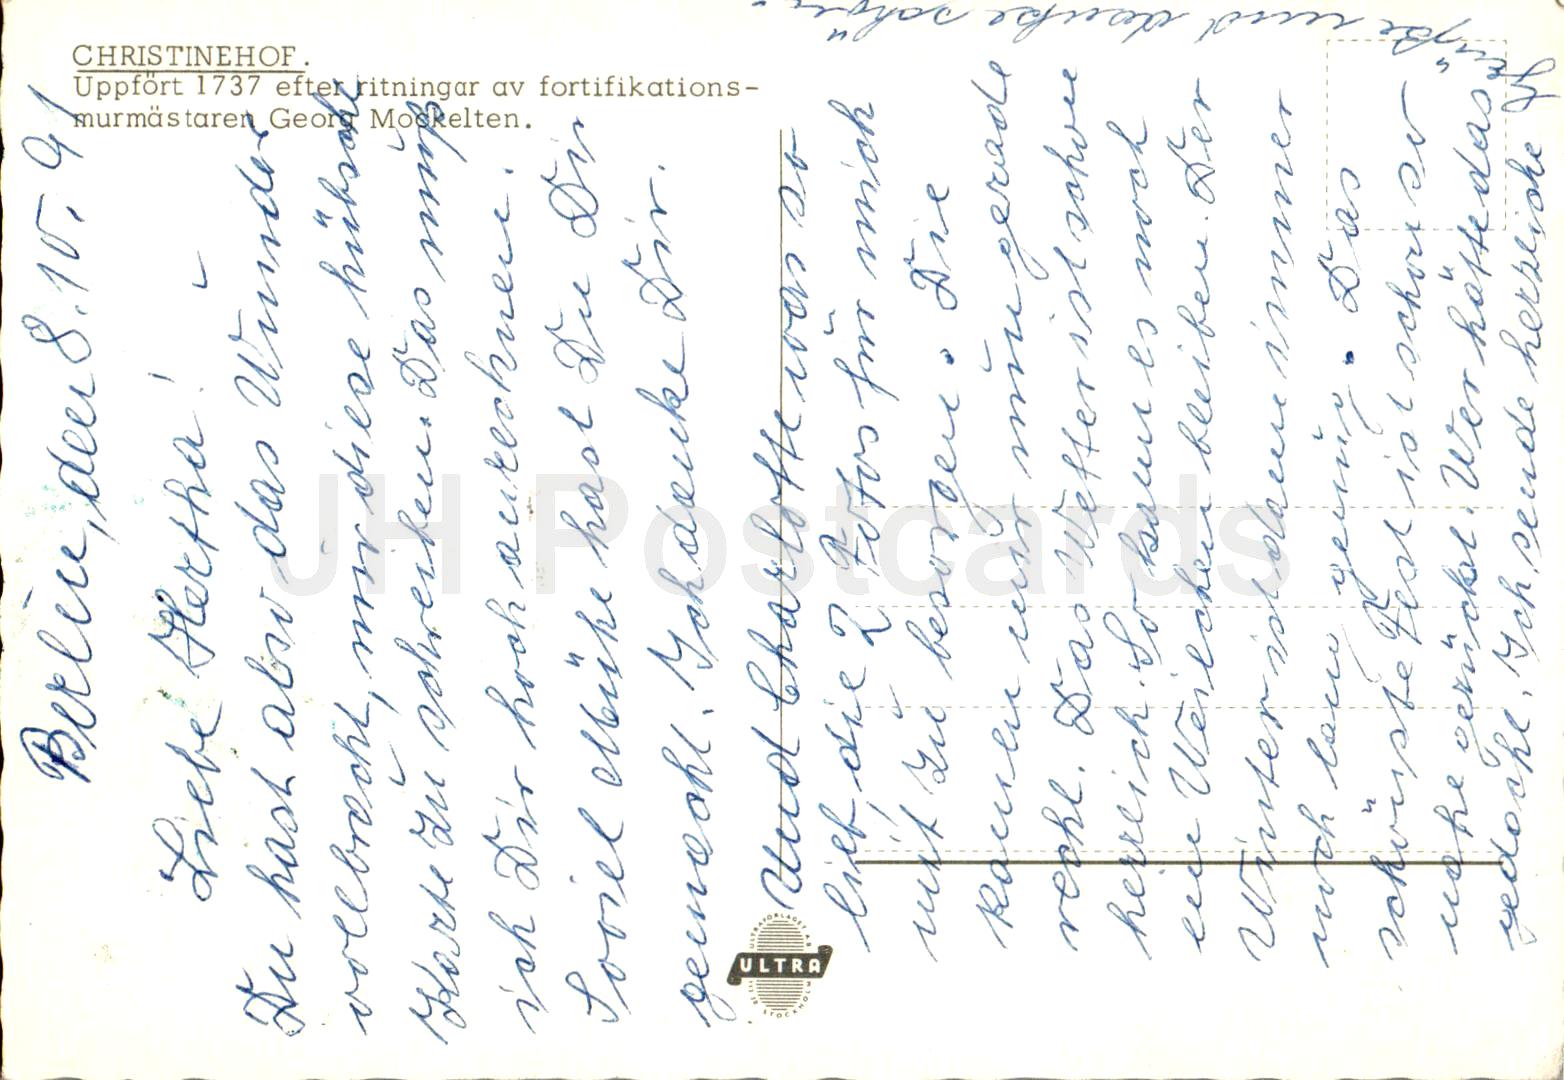 CHRISTINEHOF.
Uppfört 1737 efter ritningar av fortifikations-
murmästaren Georg Mockelten.
Berlin, den 8. 10. 91
Liebe Hertha! –
Du hast also das Wunder
vollbracht, mir diese hübsche
Karte zu schreiben. Das muß
ich Dir hoch anrechnen.
Soviel Mühe hast Du Dir
gemacht. Ich danke Dir.
Und Charlotte was so
lieb, die 2 Fotos für mich
mit zu besorgen. Die
kamen mir nun gerade
recht. Das Wetter ist schon
herrlich. So kann es noch
ein Weilchen bleiben. Der
Winter ist dann immer
noch lang genug. Das
schönste Fest ist schon so
nahe gerückt. Wer hätte das
gedacht. Ich sende herzliche
Grüße und danke schön.
ULTRAFÖRLAGET A.B.
ULTRA
STOCKHOLM
JH Postcards